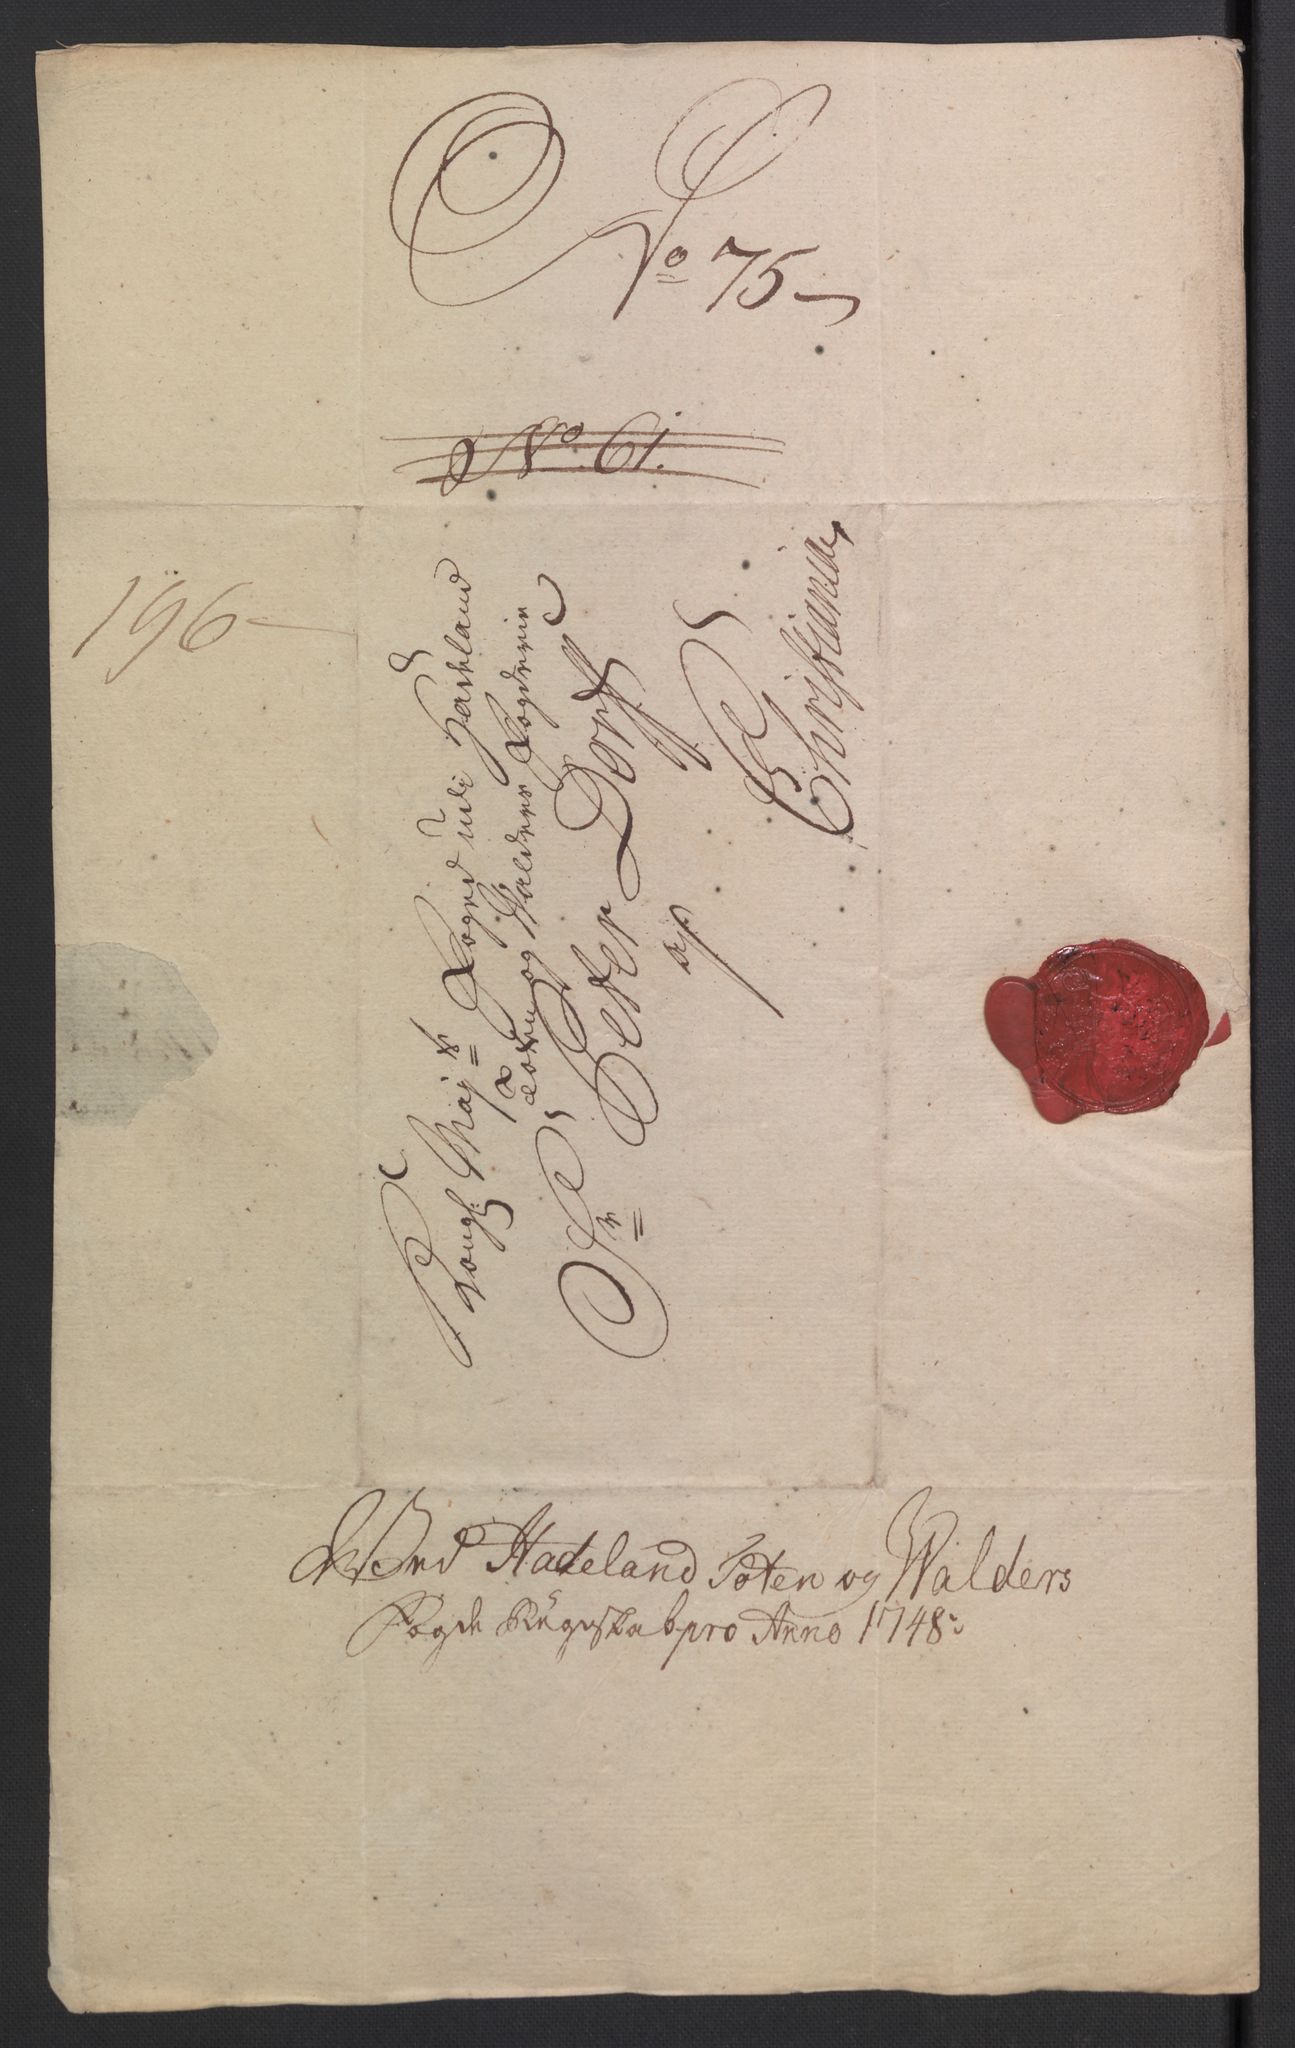 No 75
No. 61.
196
Kongl: Maj:ts Foged udi Hadeland
Toten og Walders Fogderie
Sr Peter Dorph
a
Christiania
Ved Hadeland Toten og Walders
Fogde Regnskab pro Anno 1748: